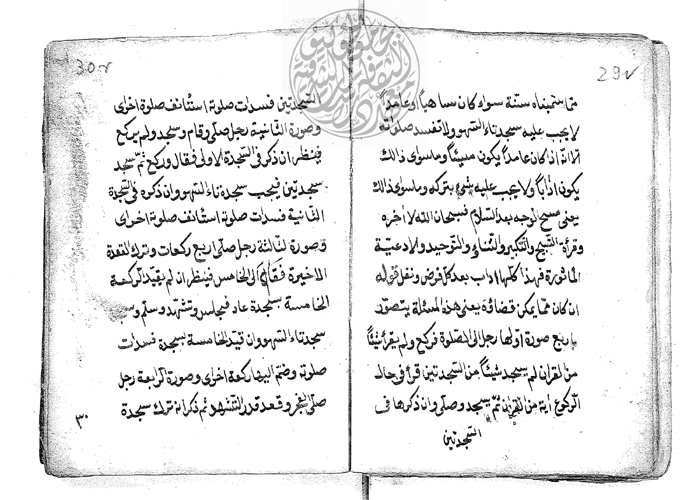 29v
مما سميناه سنة سواء كان ساهياً او عامداً
لا يجب عليه سجدتاء السهو ولا تفسد صلوته
الا انه اذا كان عامداً يكون مسيئاً وما سوى ذالك
يكون اداباً ولا يجب عليه شيئ بتركه وما سوى ذالك
يعنى مسح الوجه بعد السلام فسبحان الله لا اخره
وقرأة التسبيح والتكبير والثناء والتوحيد ولادعية
الماثورة فهذا كلها اداب بعد كل فرض ونفل قوله
ان كان مما يمكن قضاؤه يعنى هذا لمسئلة يتصور
باربع صورة اولها رجل الى الصلوة فركع ولم يقرأ شيئاً
من القران لم يسجد شيئاً من السجدتين قرأ فى حالة
الركوع اية من القران ثم يسجد وصلى وان ذكرها فى
السجدتين
30v
السجدتين فسدات صلوته استئانف صلوة اخراى
وصورة الثانية رجل صلى وقام وسجد ولم يركع
فينظر ان ذكر فى السجدة الاولى فقال وركع ثم سجد
سجدتين فيجب سجدة تاء السهو وان ذكره فى السجدة
الثانية فسدات صلوته استئانف صلوة اخراى
وصورة لثالثة رجل صلى اربع ركعات وترك القعدة
الاخيرة فقام الى الخامس فينظر ان لم يقيد الركعة
الخامسة بسجدة عاد فيجلس وتشهد وسلم وسجد
سجدتاء السهو وان قيد الخامسة بسجدة فسدات
صلوته وضم اليها ركعة اخراى وصورة الرابعة رجل
صلى الفجر وقعد قدر التشهد ثم ذكر انه ترك سجدة
٣٠